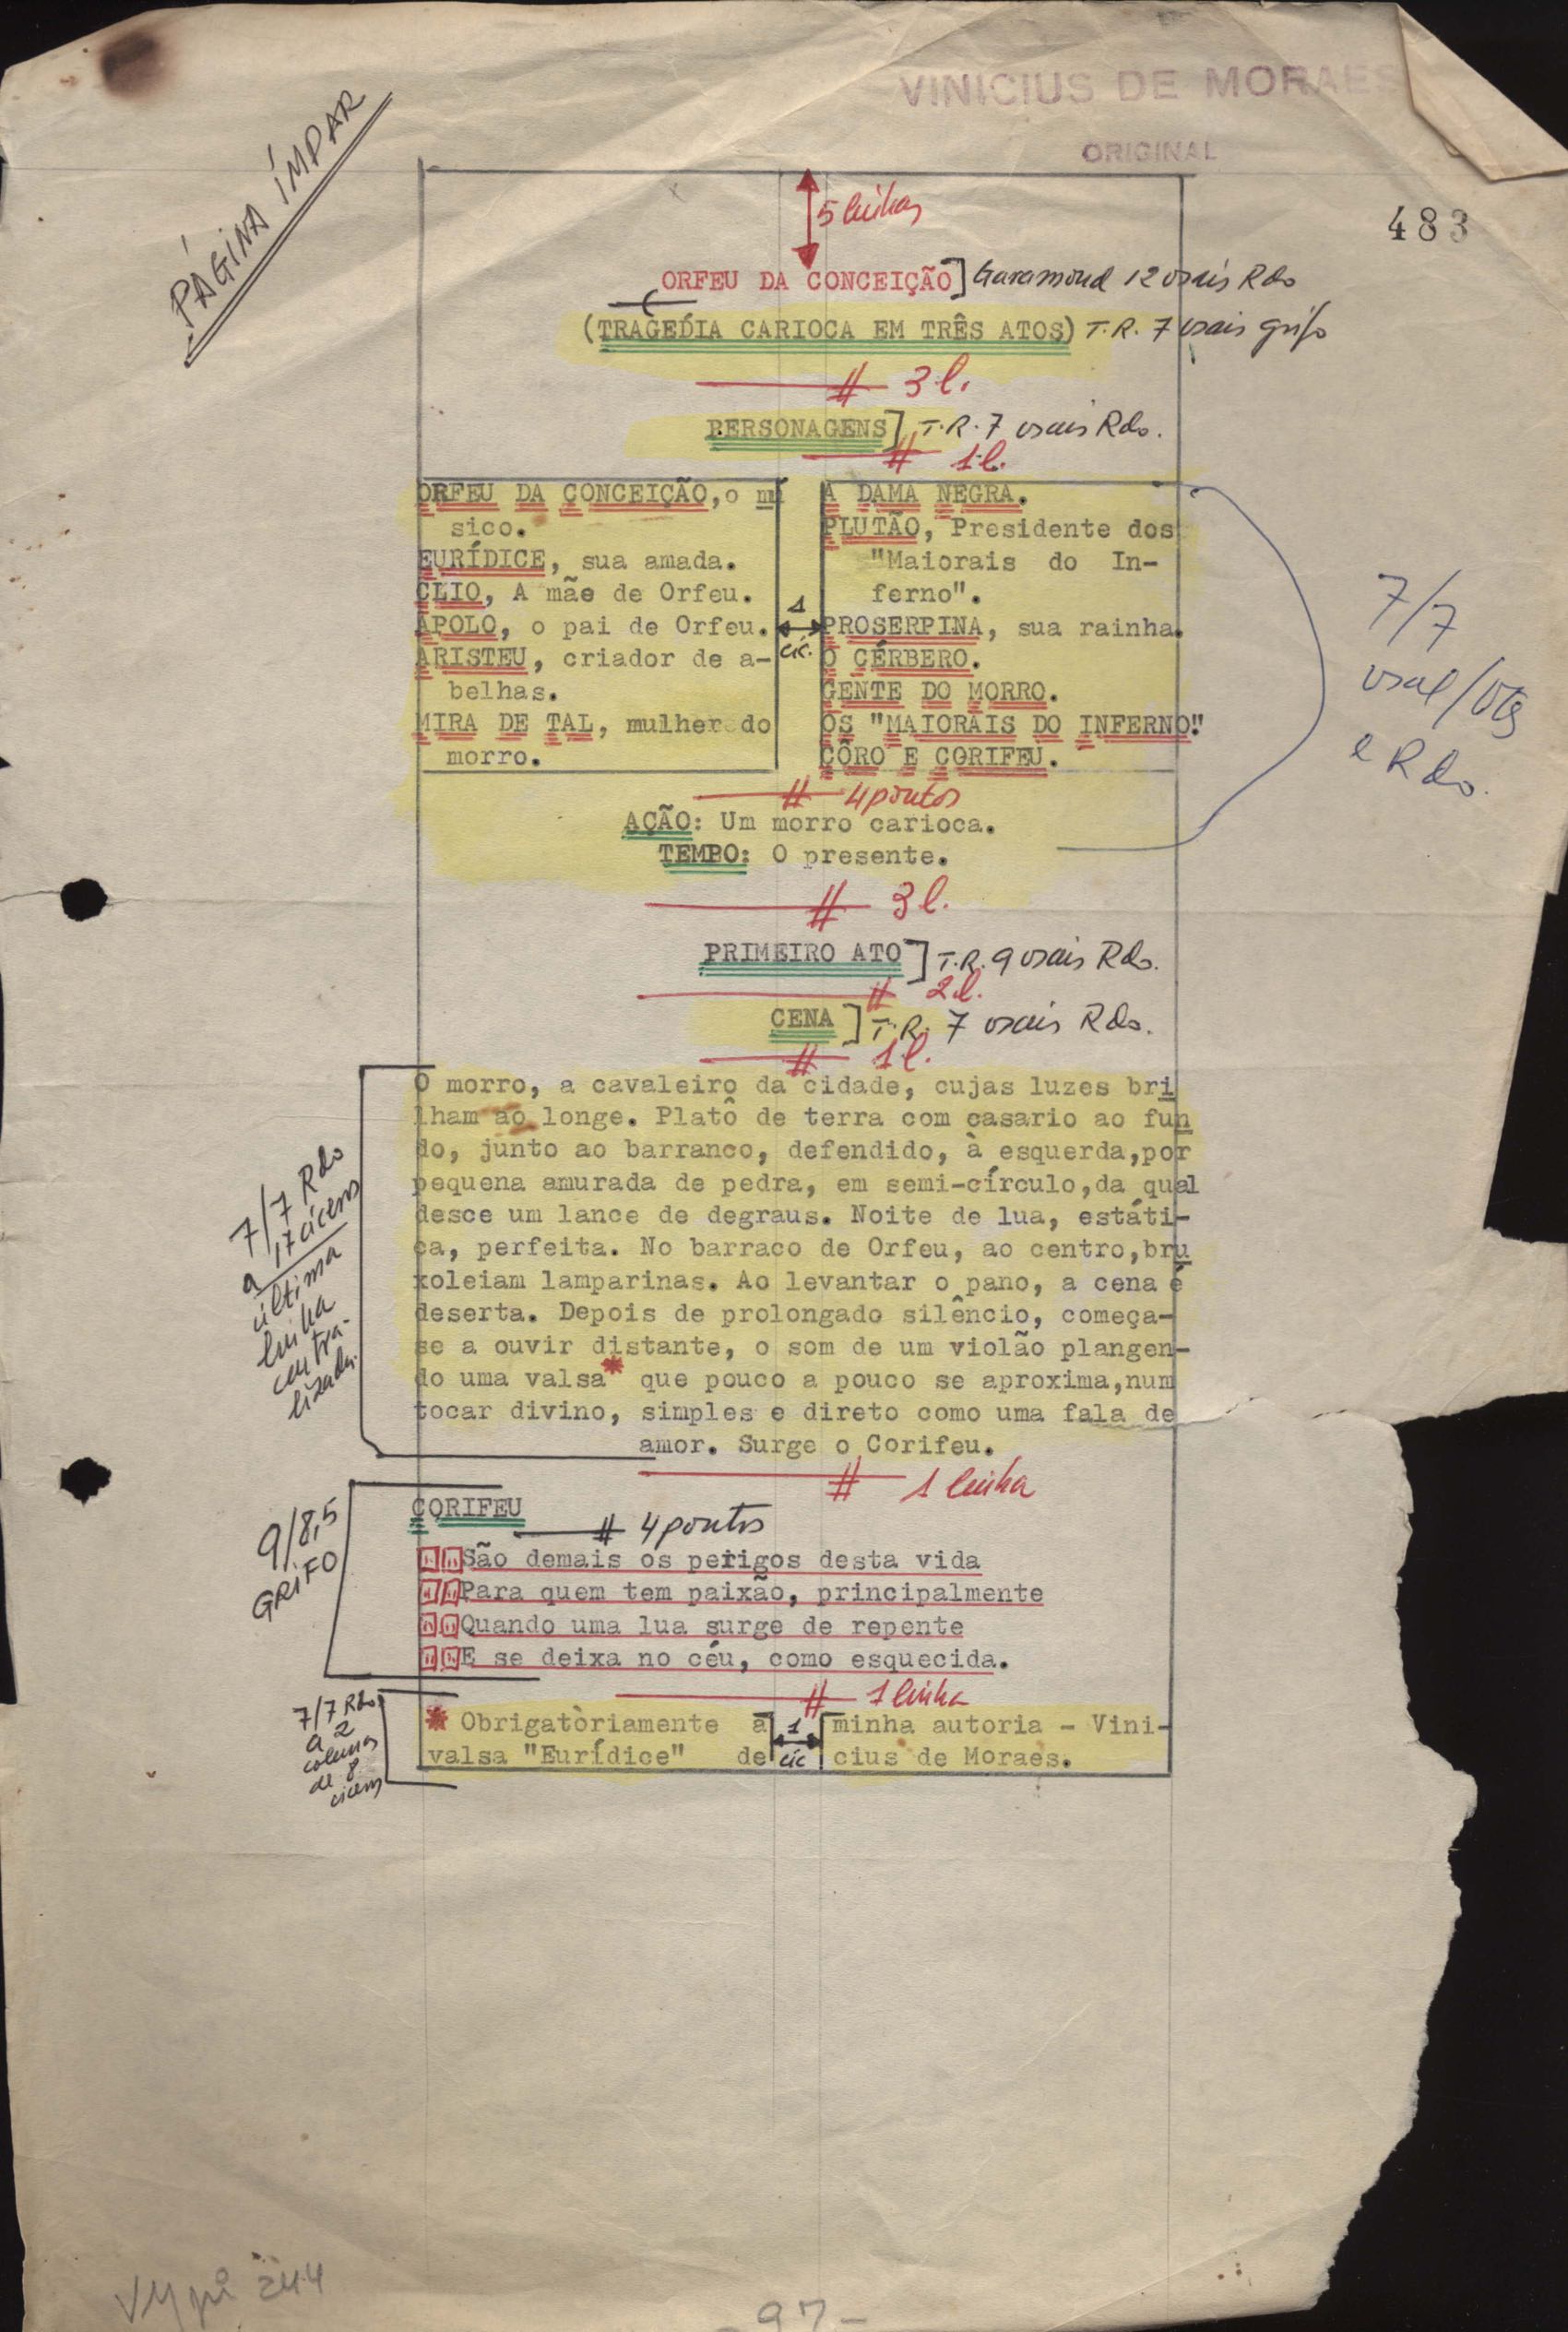 VINICIUS DE MORAES
ORIGINAL
483
PÁGINA ÍMPAR
5 linhas
ORFEU DA CONCEIÇÃO] Garamond 12 vsais Rdo
(TRAGEDIA CARIOCA EM TRÊS ATOS) T.R. 7 vsais grifo
# 3 l.
PERSONAGENS] T.R. 7 vsais Rdo.
# 1 l.
ORFEU DA CONCEIÇÃO, o mú
sico.
EURÍDICE, sua amada.
CLIO, A mãe de Orfeu.
APOLO, o pai de Orfeu.
ARISTEU, criador de a-
belhas.
MIRA DE TAL, mulher do
morro.
1
cíc.
A DAMA NEGRA.
PLUTÃO, Presidente dos
"Maiorais do In-
ferno".
PROSERPINA, sua rainha.
O CÉRBERO.
GENTE DO MORRO.
OS "MAIORAIS DO INFERNO".
CÔRO E CORIFEU.
7/7
vsal/Vtes
e Rdo.
# 4 pontos
AÇÃO: Um morro carioca.
TEMPO: O presente.
# 3 l.
PRIMEIRO ATO] T.R. 9 vsais Rdo.
# 2 l.
CENA] T.R. 7 vsais Rdo.
# 1 l.
7/7 Rdo
a 17 cíceros
última
linha
centra-
lizada.
O morro, a cavaleiro da cidade, cujas luzes bri
lham ao longe. Platô de terra com casario ao fun
do, junto ao barranco, defendido, à esquerda, por
pequena amurada de pedra, em semi-círculo, da qual
desce um lance de degraus. Noite de lua, estáti-
ca, perfeita. No barraco de Orfeu, ao centro, bru
xoleiam lamparinas. Ao levantar o pano, a cena é
deserta. Depois de prolongado silêncio, começa-
se a ouvir distante, o som de um violão plangen-
do uma valsa* que pouco a pouco se aproxima, num
tocar divino, simples e direto como uma fala de
amor. Surge o Corifeu.
# 1 linha
9/8,5
GRIFO
CORIFEU
# 4 pontos
São demais os perigos desta vida
Para quem tem paixão, principalmente
Quando uma lua surge de repente
E se deixa no céu, como esquecida.
# 1 linha
7/7 Rdo
a 2
colunas
de 8
cíceros
* Obrigatòriamente a
valsa "Eurídice" de
1
cíc
minha autoria - Viní-
cius de Moraes.
VMpi 244
97-